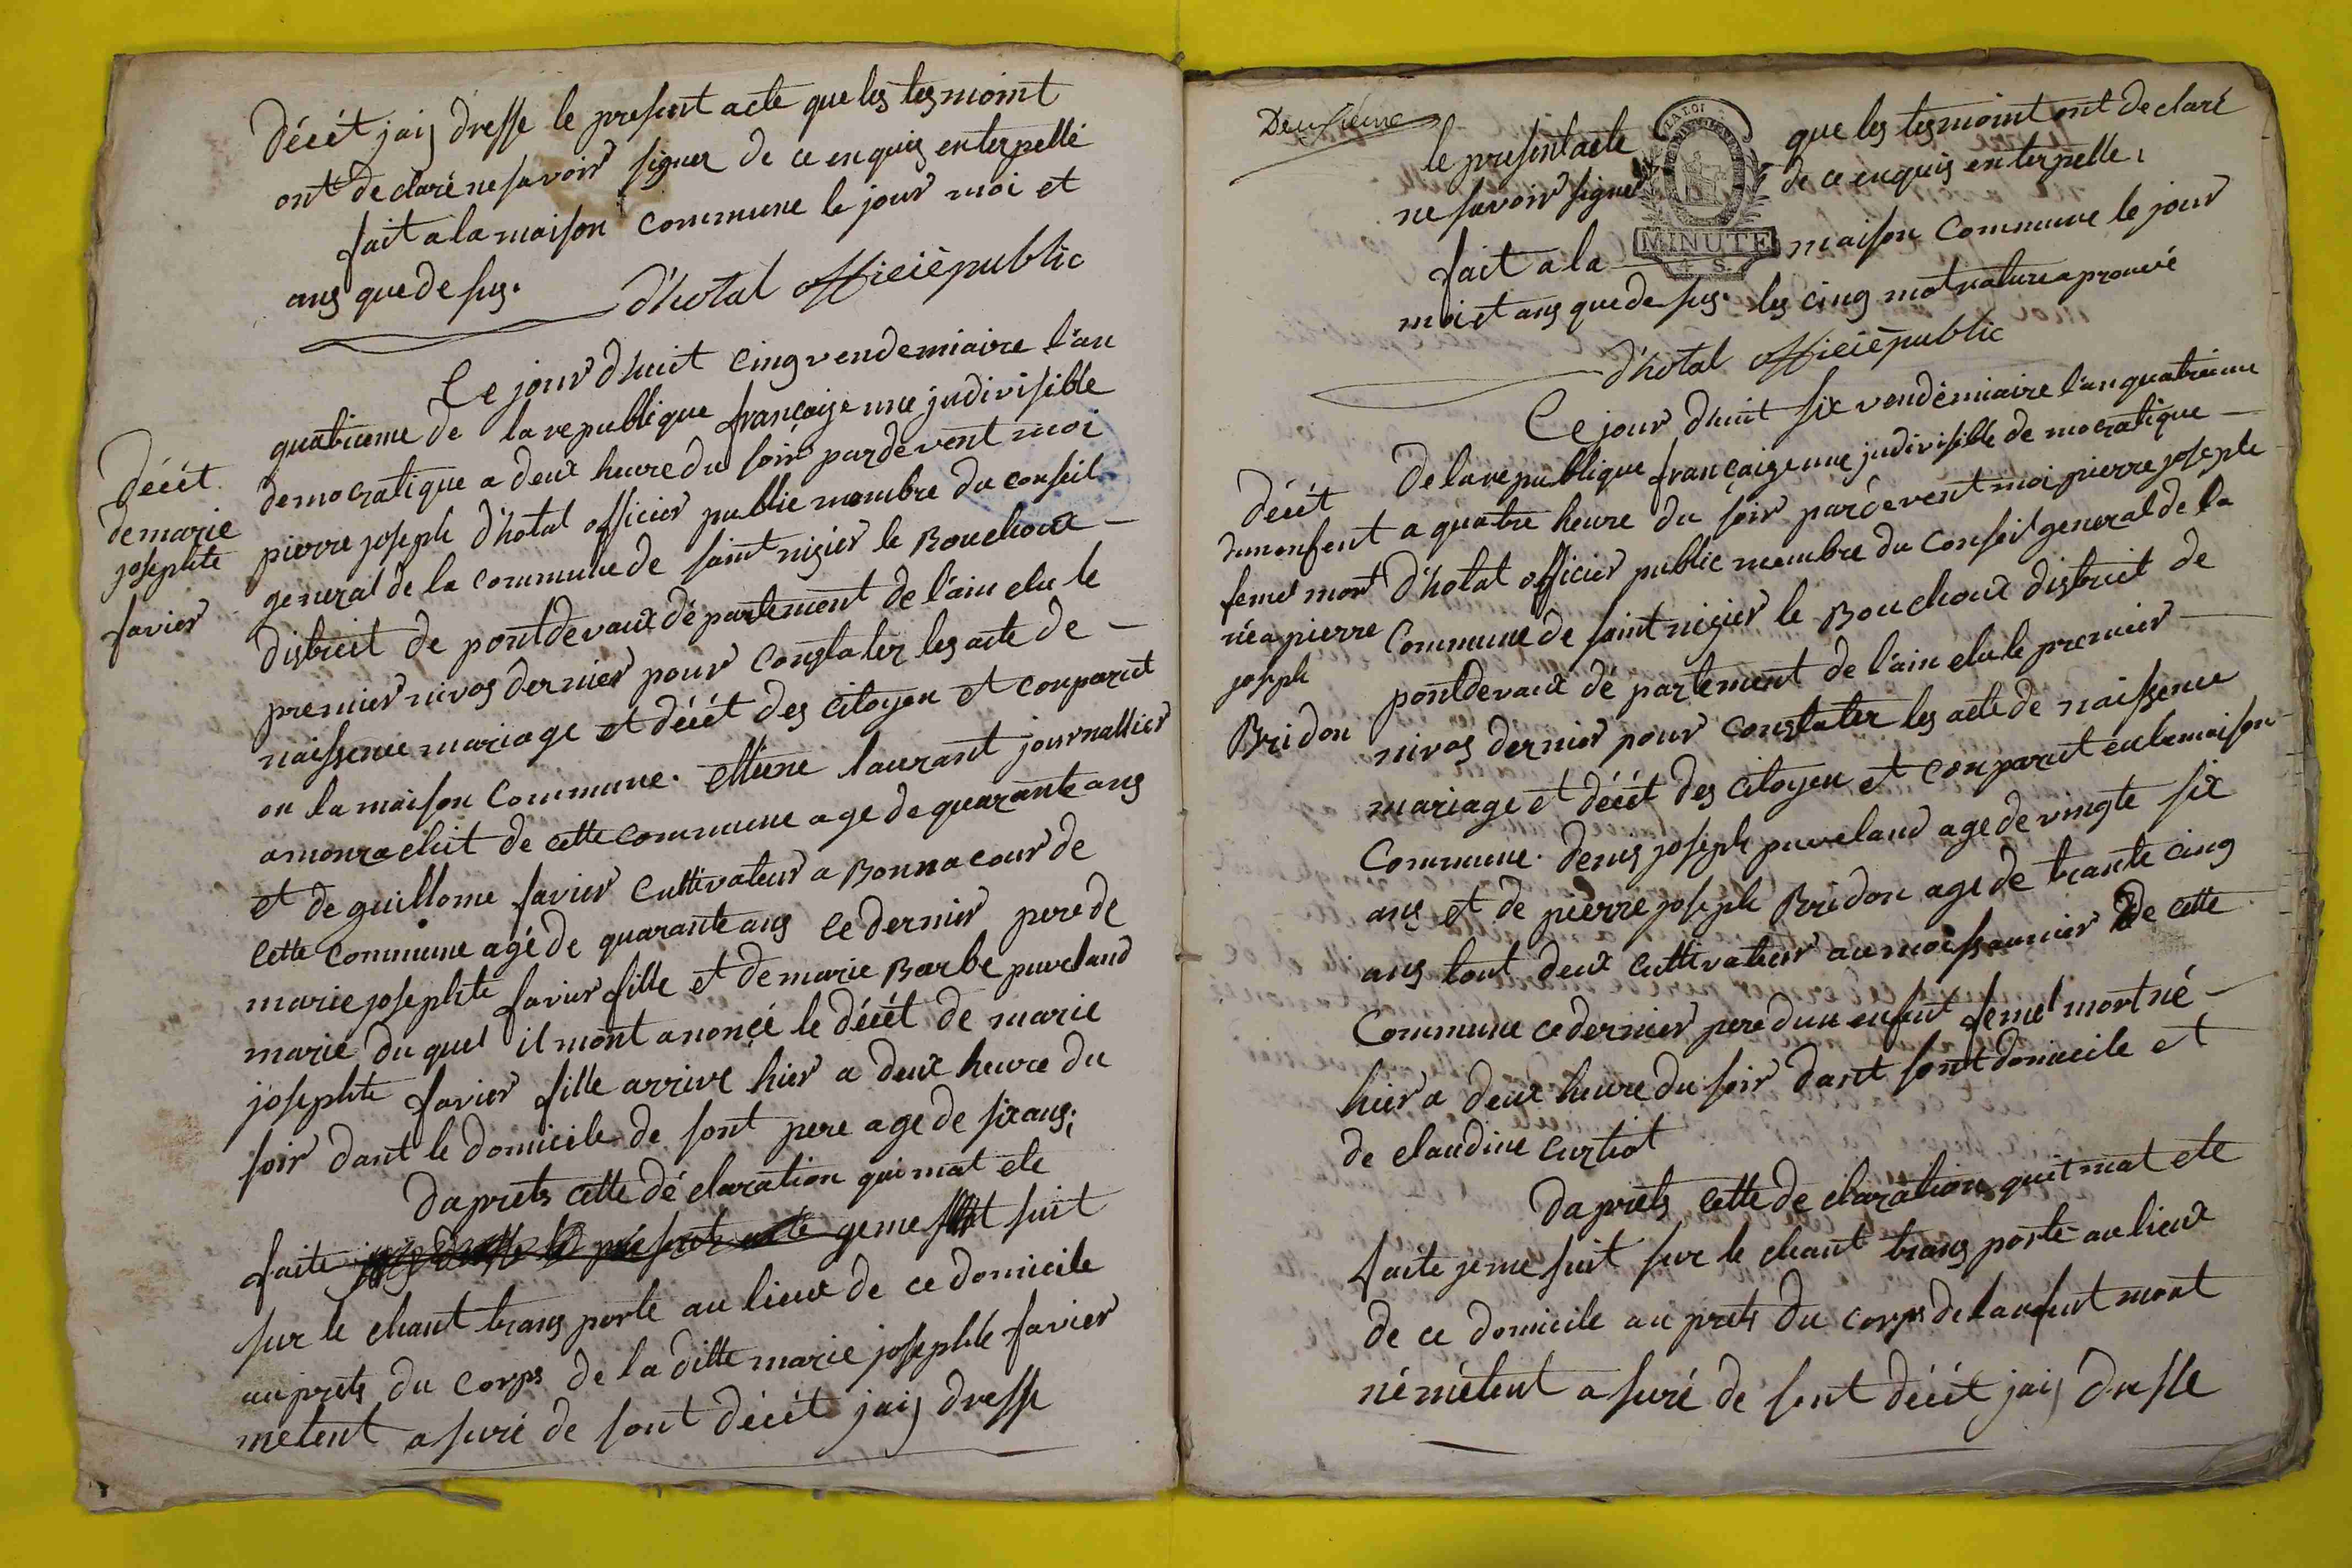 décét jaij dresse le present acte que les tesmoint
ont declaré ne savoir signer de ce enquis enterpellé
fait a la maison commune le jour moi et
ans que de sus.
d'hotal officié public
Ce jour d'huit cinq vendemiaire l'an
quatrieme de la republique françaize une jndivisible
democratique a deux heure du soir pardevent moi
pierre joseph d'hotal officier public membre du conseil
general de la commune de saint nizier le Bouchoux
district de pontdevaux département de l'ain elu le
premier nivos dernier pour constater les acte de
naissence mariage et décét des citoyen et conparut
en la maison commune. ettiene laurant journallier
a monrachit de cette commune age de quarante ans
et de guillome favier cultivateur a Bonnacour de
cette commune agé de quarante ans ce dernier pere de
marie josephte favier fille et de marie Barbe puveland
marie du quel il mont anoncé le décét de marie
josephte favier fille arrive hier a deux heure du
soir dant le domicile de sont pere age de sixans;
Daprets cette déclaration qui mat ete
faite jaij dresse le présent acte geme suit
sur le chant trans porte au lieux de ce domicile
au prets du corps de la ditte marie josephte favier
metent a suré de sont décét jaij dresse
Décét
de marie
josephte
favier
Deusieme
le present acte que les tesmoint ont declaré
ne savoir signer de ce enquis enterpelle,
LA LOI
MINUTE
4 S.
fait a la maison commune le jour
moi et ans que de sus. les cinq mot rature aprouvé
d'hotal officié public
Ce jour d'huit six vendémiaire l'an quatrieme
De la republique françaize une jndivisible de mocratique
a quatre heure du soir pardevent moi pierre josephte
d'hotal officier public membre du conseil general de la
Commune de saint nizier le Bouchoux district de
pontdevaux dé partement de l'ain elu le premier
nivos dernier pour constater les acte de naissence
mariage et décét des citoyen et conparut en la maison
Commune. denis joseph puveland age de vingte six
ans et de pierre joseph Bridon age de trante cinq
ans tout deux cultivateur au moissonnier De cette
Commune ce dernier pere dun enfent femel mort né
hier a deux heure du soir dant sont domicile et
de claudine curtiot
Daprets cette de claration quit mat ete
faite je me suit sur le chant trans porté au lieux
de ce domicile au prets du corps de lanfent mort
né métent a suré de sont décét jaij dresse
Décét
dun enfent
femel mort
né a pierre
joseph
Bridon